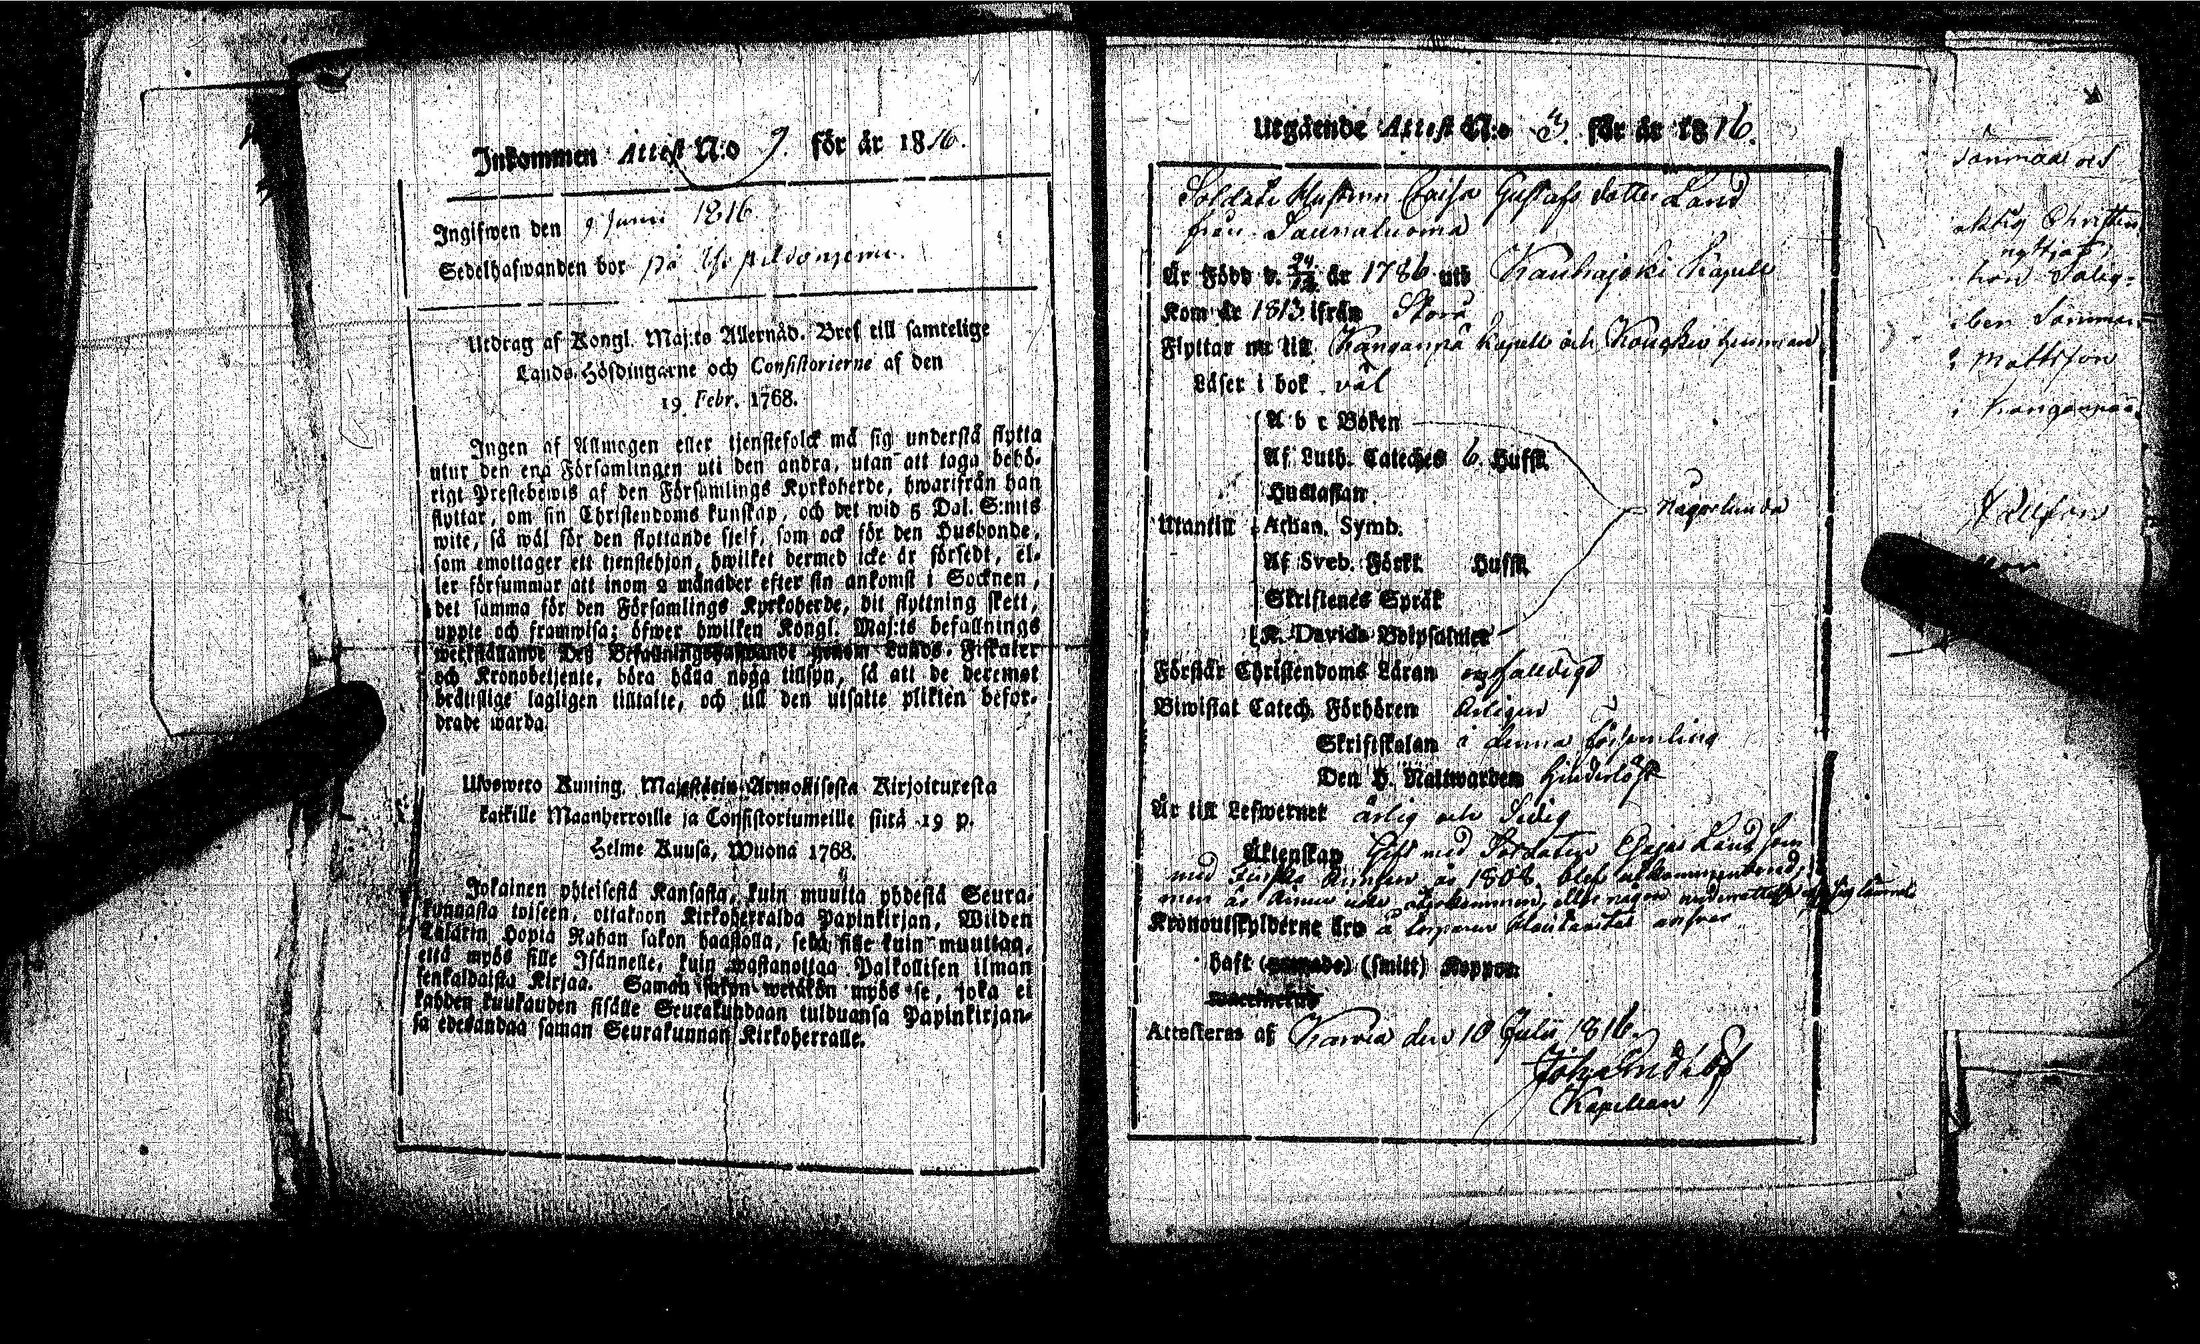 Inkommen Attest N:o 9. för år 1816.
Ingifwen den 9 Junii 1816
Sedelhafwanden bor på
Utdrag af Kongl. Maj:ts Allernåd. Bref till samtelige
Lands-Höfdingarne och Consistorierne af den
19 Febr. 1768.
Ingen af Allmogen eller tjenstefolck må sig understå flytta
utur den ena Församlingen uti den andra, utan att taga behö-
rigt Prestebewis af den Församlings Kyrkoherde, hwarifrån han
flyttar, om sin Christendoms kunskap, och det wid 5 Dal. S:mts
wite, så wäl för den flyttande sjelf, som ock för den Husbonde,
som emottager ett tjenstehjon, hwilket dermed icke är försedt, el-
ler försummar att inom 2 månader efter sin ankomst i Socknen,
det samma för den Församlings Kyrkoherde, dit flyttning skett,
uppte och framwisa; öfwer hwilken Kongl. Maj:ts befallnings
werkställande Des Befallningshafwande genom Lands-Fiskaler
och Kronobetjente, böra hålla noga tillsyn, så att de deremot
bråttslige lagligen tilltalte, och till den utsatte plikten befor-
drade warda.
Uloswero Kuning. Majestätin Armollisesta Kirjoituxesta
kaikille Maanherroille ja Consistoriumeille siitä 19 p.
Helme Kuusa, Wuona 1768.
Jokainen yhteisestä Kansasta, kuin muutta yhdestä Seura-
kunnasta toiseen, ottakoon Kirkoherralda Papinkirjan, Wiiden
Talarin Hopia Rahan sakon haastolla, sekä sille kuin muuttaa,
että myös sille Isännelle, kuin wastanottaa Palkollisen ilman
senkaldaista Kirjaa. Saman sakon wetäkön myös se, joka ei
kahden kuukauden sisälle Seurakundaan tulduansa Papinkirjan-
sa edesandaa saman Seurakunnan Kirkoherralle.
Utgående Attest N:o 3. för år 1816.
Soldats Hustrun Caisa Gustafs dotter Land
från Saunaluoma
Är Född d. 24/12 år 1786 uti Kauhajoki Kapell
Kom år 1813 ifrån Storå
Flyttar nu till Kanganpä Kapell och hemman
Läser i bok väl
A b c Boken
Af Luth. Cateches 6. Huffst.
Hustaflan
Utantill Athan. Symb.
Af Sveb. Förkl. Huffst.
Skriftenes Språk
K. Davids Botpsalmer
någorlunda
Förstår Christendoms Läran enfaldigt
Biwistat Catech. Förhören årligen
Skriftskolan i denna församling
Den H. Nattwarden hinderlöst
Är till Lefwernet ärlig och Sedig
Äktenskap Gift med Soldaten Land som
med Finska Armeen år 1808 blef utkommenderad,
men är ännu icke återkommen, eller någon underrättelse
Kronoutskylderne äro å ansvar
haft (smitt) Koppor
Attesteras af Karvia den 10 Julii 1816.
Kapellan
Mattsson